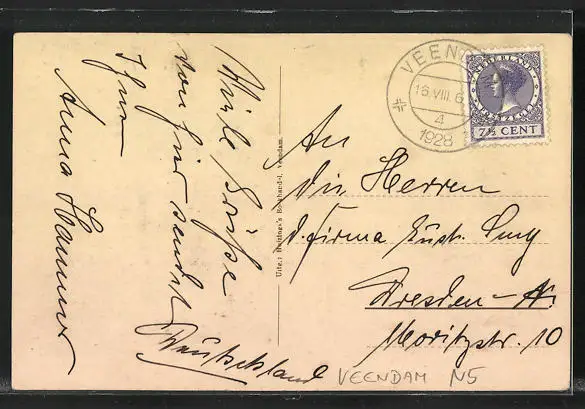 Viele Grüße
von hier sendet
Ihnen
Anna Hammer
Uitg.: Boekhandel, Veendam.
VEEN
16.VIII.6
4
1928
NEDERLAND
7½ CENT
An
die Herren
d. Firma Gust.
Dresden-N.
Moritzstr. 10
Deutschland
VEENDAM N5